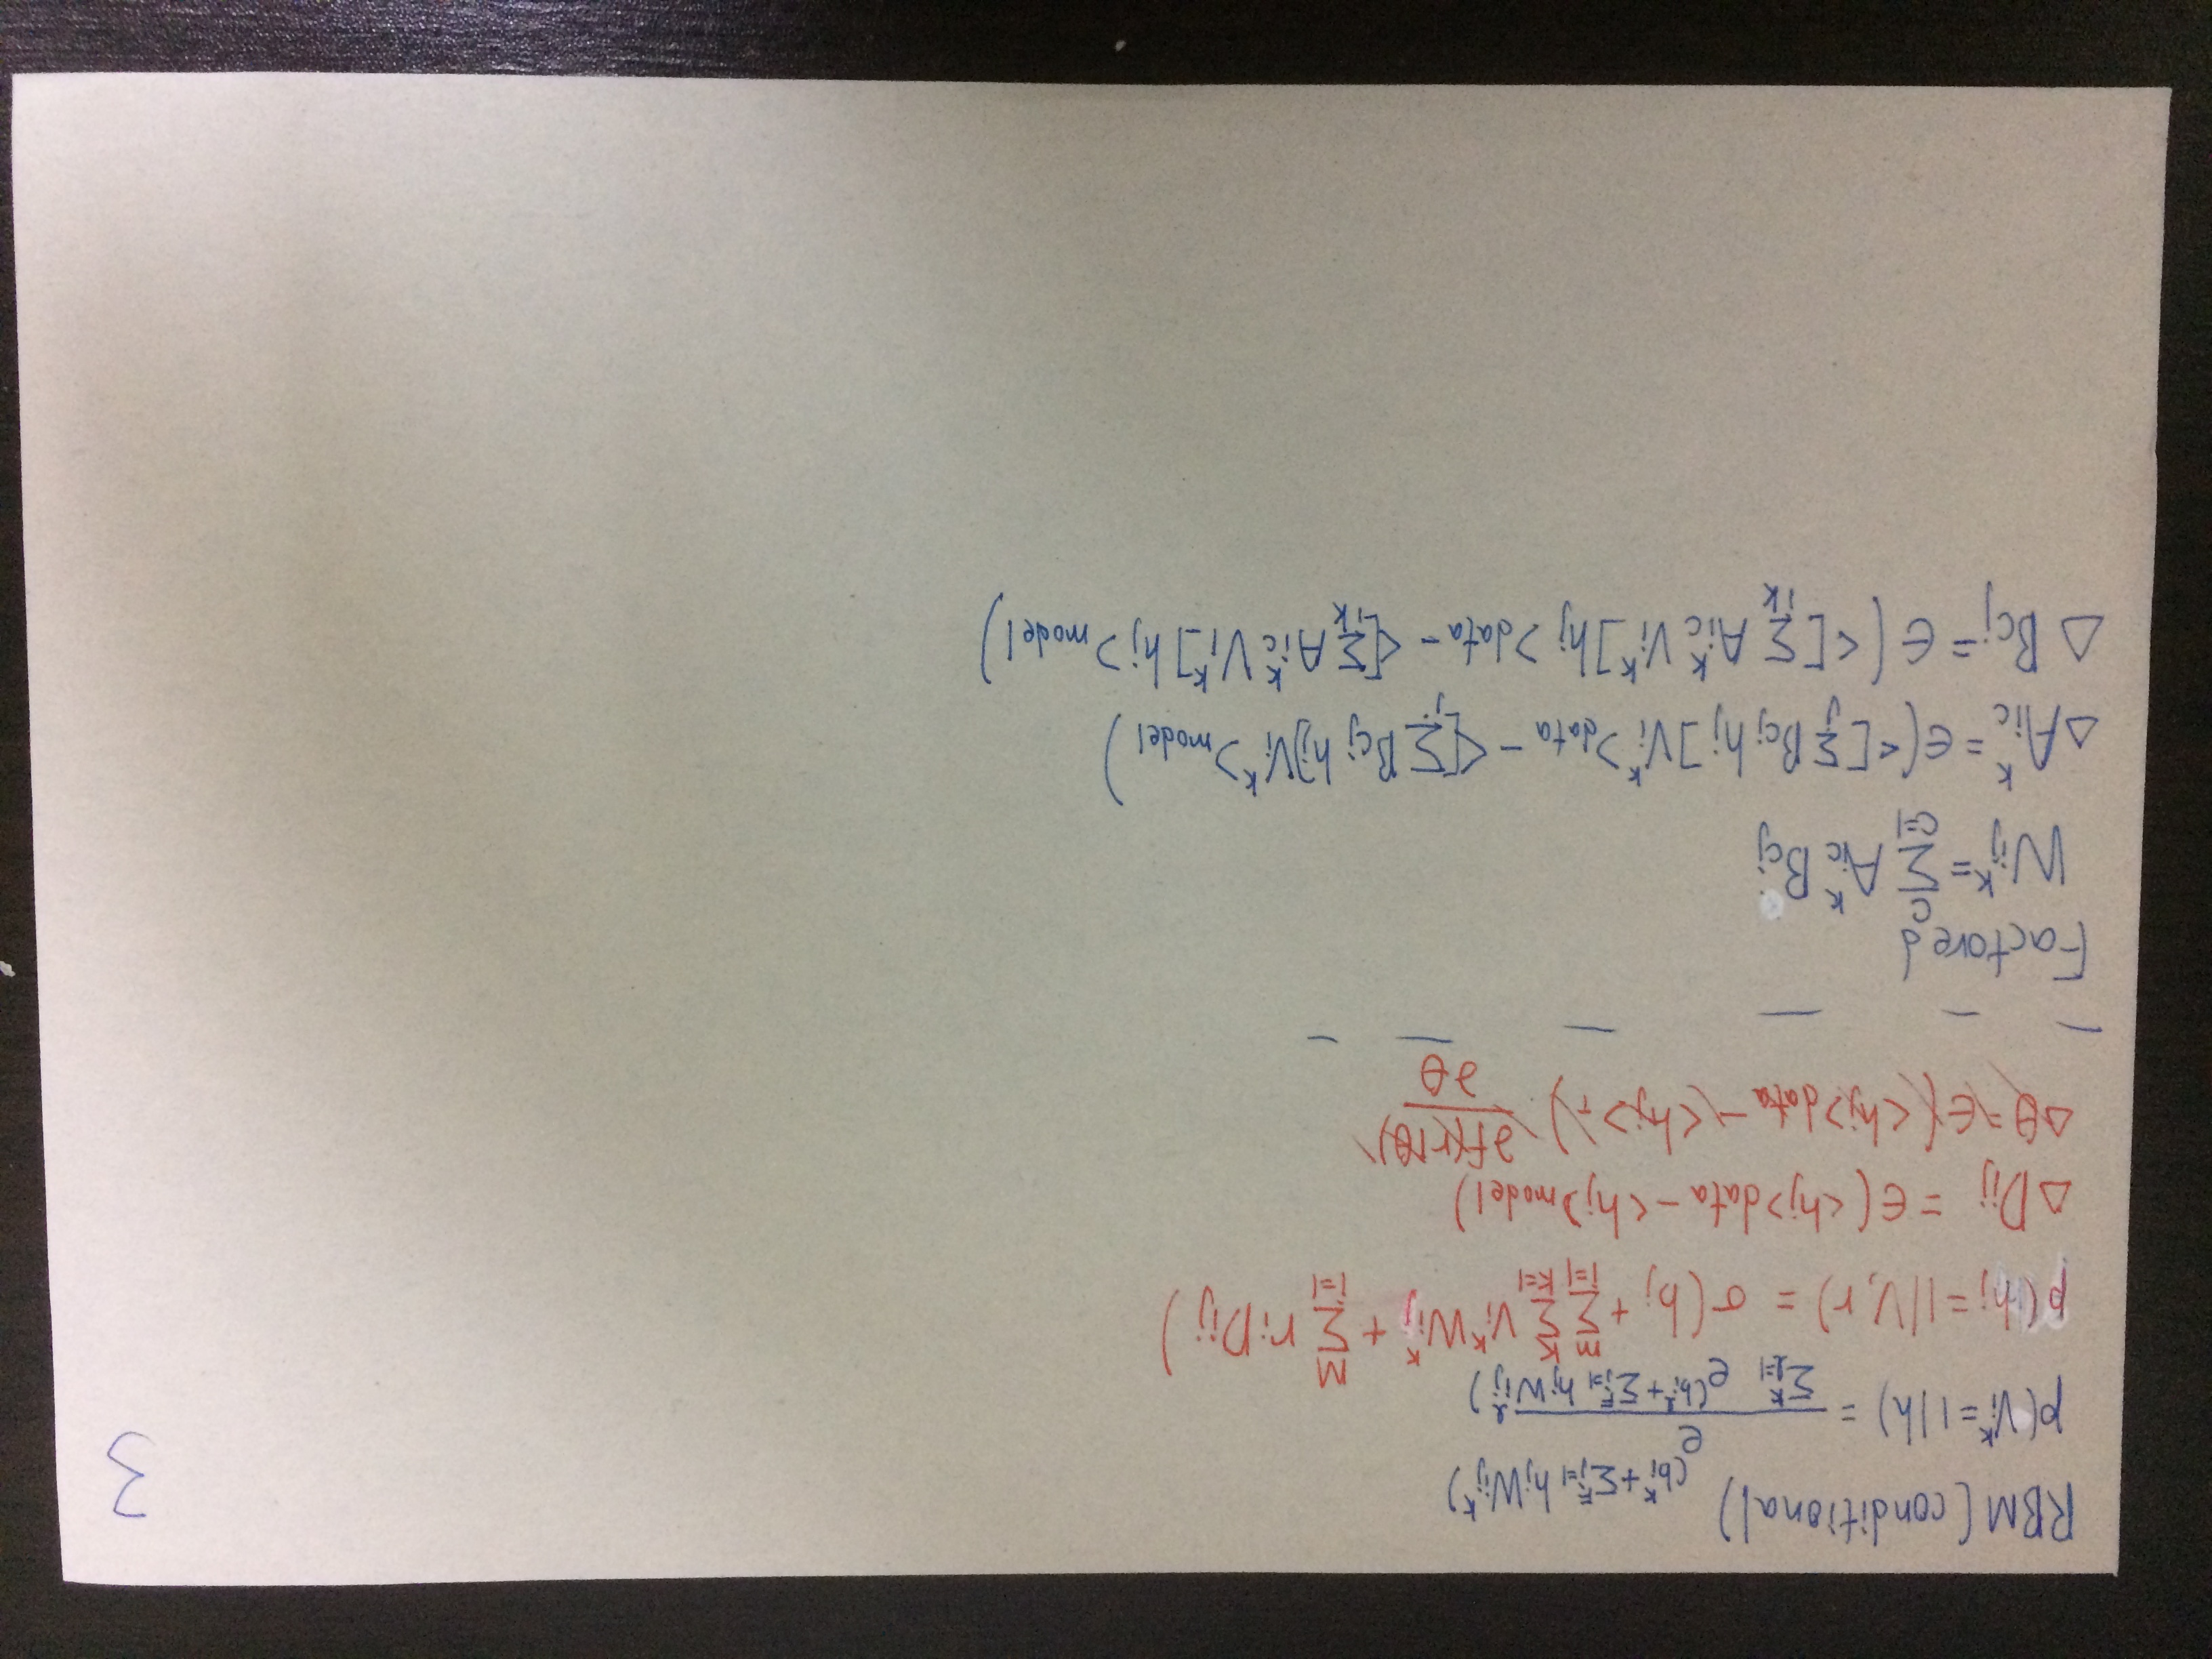 RBM(conditional)
3
p(V_i^k=1|h) = e^(b_i^k+Σ_{j=1}^F h_j W_ij^k) / Σ_{l=1}^k e^(b_i^l+Σ_{j=1}^F h_j W_ij^l)
p(h_j=1|V,r) = σ(b_j + Σ_{i=1}^m Σ_{k=1}^K V_i^k W_ij^k + Σ_{i=1}^M r_i D_ij)
ΔD_ij = ∈(<h_j>data - <h_j>model)
Δθ=∈(<h_j>data - <h_j>T) ∂f(r|θ)/∂θ
Factored
W_ij^k = Σ_{c=1}^C A_ic^k B_cj
ΔA_ic^k = ∈(<[Σ_j B_cj h_j]V_i^k>data - <[Σ_j B_cj h_j]V_i^k>model)
ΔB_cj = ∈(<[Σ_ik A_ic^k V_i^k]h_j>data - <[Σ_ik A_ic^k V_i^k]h_j>model)